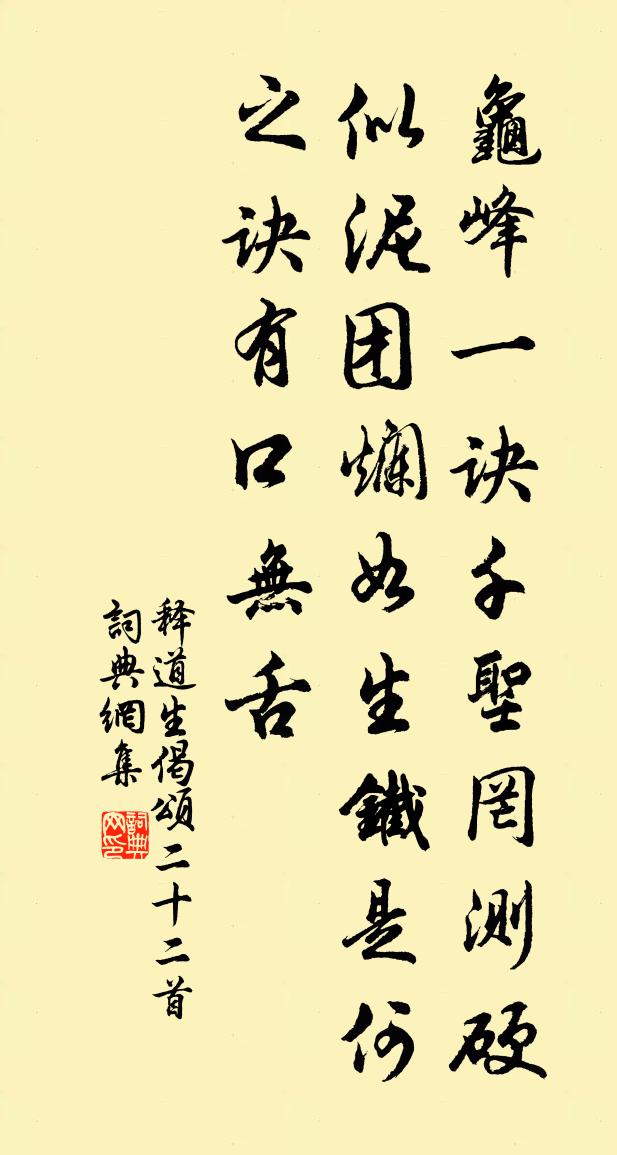 龜峰一诀千聖罔測硬
似泥团爛如生鐵是何
之诀有口無舌
释道生偈頌二十二首
詞典網集
詞典网印